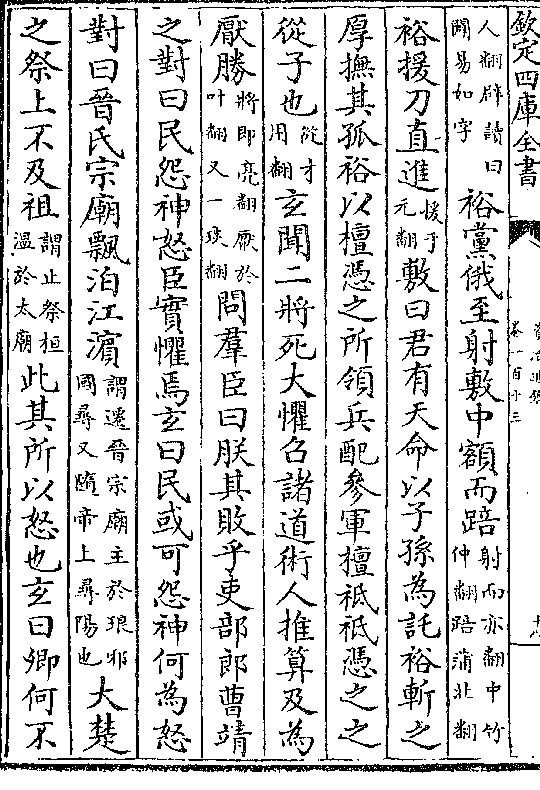 欽定四庫全書
資治通鑑
卷一百十三
人翻辟讀曰闢易如字裕黨俄至射敷中額而踣射而亦翻中竹仲翻踣蒲北翻
裕援刀直進援于元翻敷曰君有天命以子孫為託裕斬之
厚撫其孤裕以檀憑之所領兵配參軍檀祗祗憑之之
從子也從才用翻玄聞二將死大懼召諸道術人推算及為
厭勝將即亮翻厭於叶翻又一琰翻問羣臣曰朕其敗乎吏部郎曹靖
之對曰民怨神怒臣實懼焉玄曰民或可怨神何為怒
對曰晉氏宗廟飄泊江濵謂遷晉宗廟主於琅邪國尋又隨帝上尋陽也大楚
之祭上不及祖謂止祭桓溫於太廟此其所以怒也玄曰卿何不